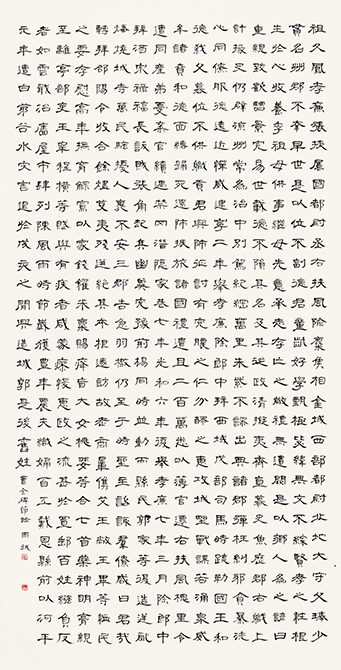 祖父鳳孝廉張掖屬國都尉丞右扶風隃麋侯相金城西部都尉北地大守父琫少
貫名州郡不幸早世是以位不副德君童齓好學甄極毖緯無文不綜賢孝之性根
生於心收養季祖母供事繼母先意承志存亡之敬禮無遺闕是以鄉人為之諺曰
重親致歡曹景完易世載德不隕其名及其從政清擬夷齊直慕史魚歷郡右職上
計掾史仍辟涼州常為治中別駕紀綱萬里朱紫不謬出典諸郡彈枉糾邪貪暴洗
心同僚服德遠近憚威建寧二年舉孝廉除郎中拜西域戊部司馬時疏勒國王和
德弒父篡位不供職貢君興師征討有吮膿之仁分醪之惠攻城野戰謀若涌泉威
牟諸賁和德面縛歸死還師振旅諸國禮遺且二百萬悉以薄官遷右扶風槐里令
遭同產弟憂棄官續遇禁网潛隱家巷七年光和六年復舉孝廉七年三月除郎中
拜酒泉祿福長訞賊張角起兵幽冀兗豫荊楊同時並動而縣民郭家等復造逆亂
燔燒城寺萬民騷擾人裹不安三郡告急羽檄仍至于時聖主諮諏群僚咸曰君哉
轉拜郃陽令收合餘燼芟夷殘迸絕其本根遂訪故老商量儁艾王敞王畢等恤民
之要存慰高年撫育鰥寡以家錢糴米粟賜癃盲大女桃婓等合七首藥神明膏親
至離亭部吏王睪程橫等賦與有疾者咸蒙瘳悛惠政之流甚於置郵百姓繦負反
者如雲戢治廧屋市肆列陳風雨時節歲獲豐年農夫織婦百工戴恩縣前以河平
元年遭白茅谷水災害退於戌亥之間興造城郭是後舊姓 曹全碑節臨